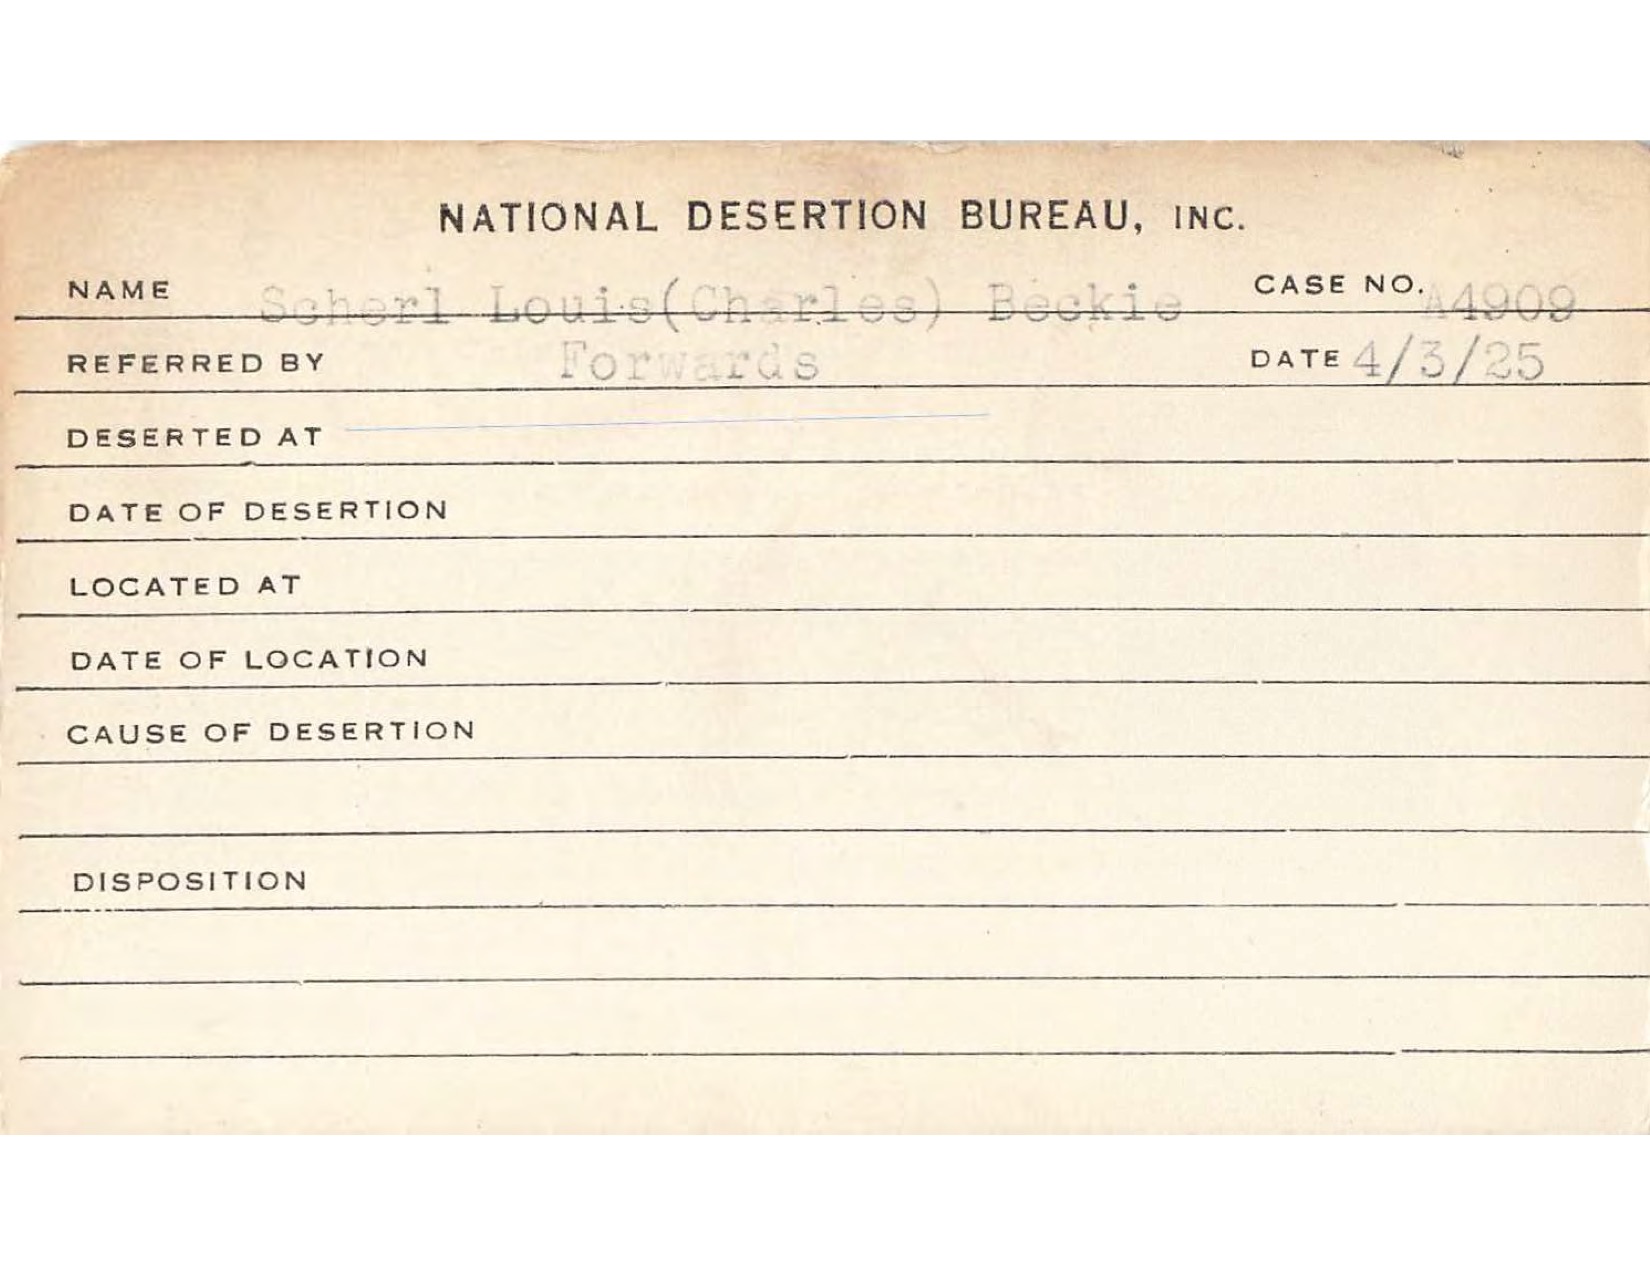 NATIONAL DESERTION BUREAU, INC.
NAME Scherl Louis(Charles) Beckie CASE NO. A4909
REFERRED BY Forwards DATE 4/3/25
DESERTED AT
DATE OF DESERTION
LOCATED AT
DATE OF LOCATION
CAUSE OF DESERTION
DISPOSITION